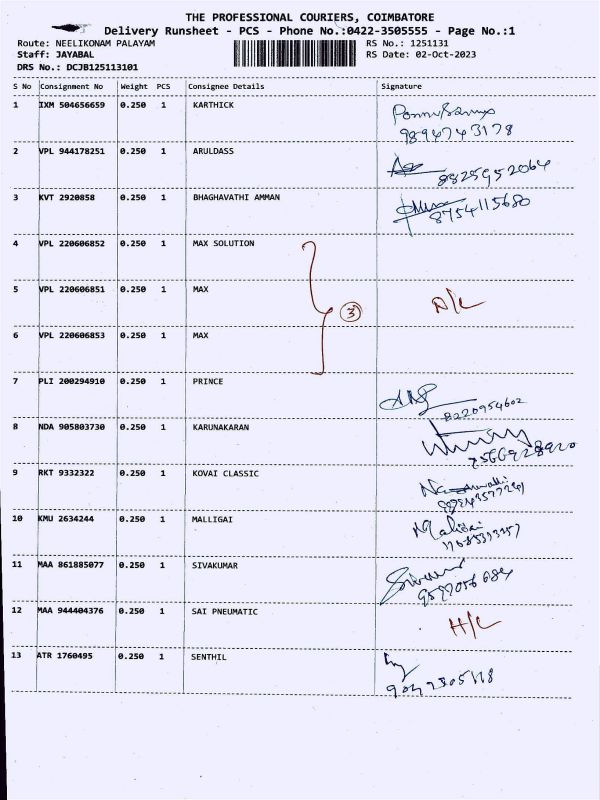 THE PROFESSIONAL COURIERS, COIMBATORE
Delivery Runsheet - PCS - Phone No.:0422-3505555 - Page No.:1
Route: NEELIKONAM PALAYAM RS No.: 1251131
Staff: JAYABAL RS Date: 02-Oct-2023
DRS No.: DCJB125113101
S No Consignment No Weight PCS Consignee Details Signature
1 IXM 504656659 0.250 1 KARTHICK
9894743178
2 VPL 944178251 0.250 1 ARULDASS
8825952064
3 KVT 2920858 0.250 1 BHAGHAVATHI AMMAN
8754115680
4 VPL 220606852 0.250 1 MAX SOLUTION
5 VPL 220606851 0.250 1 MAX 3 D/L
6 VPL 220606853 0.250 1 MAX
7 PLI 200294910 0.250 1 PRINCE
8220954602
8 NDA 905803730 0.250 1 KARUNAKARAN
9 RKT 9332322 0.250 1 KOVAI CLASSIC
10 KMU 2634244 0.250 1 MALLIGAI
11 MAA 861885077 0.250 1 SIVAKUMAR
12 MAA 944404376 0.250 1 SAI PNEUMATIC H/L
13 ATR 1760495 0.250 1 SENTHIL